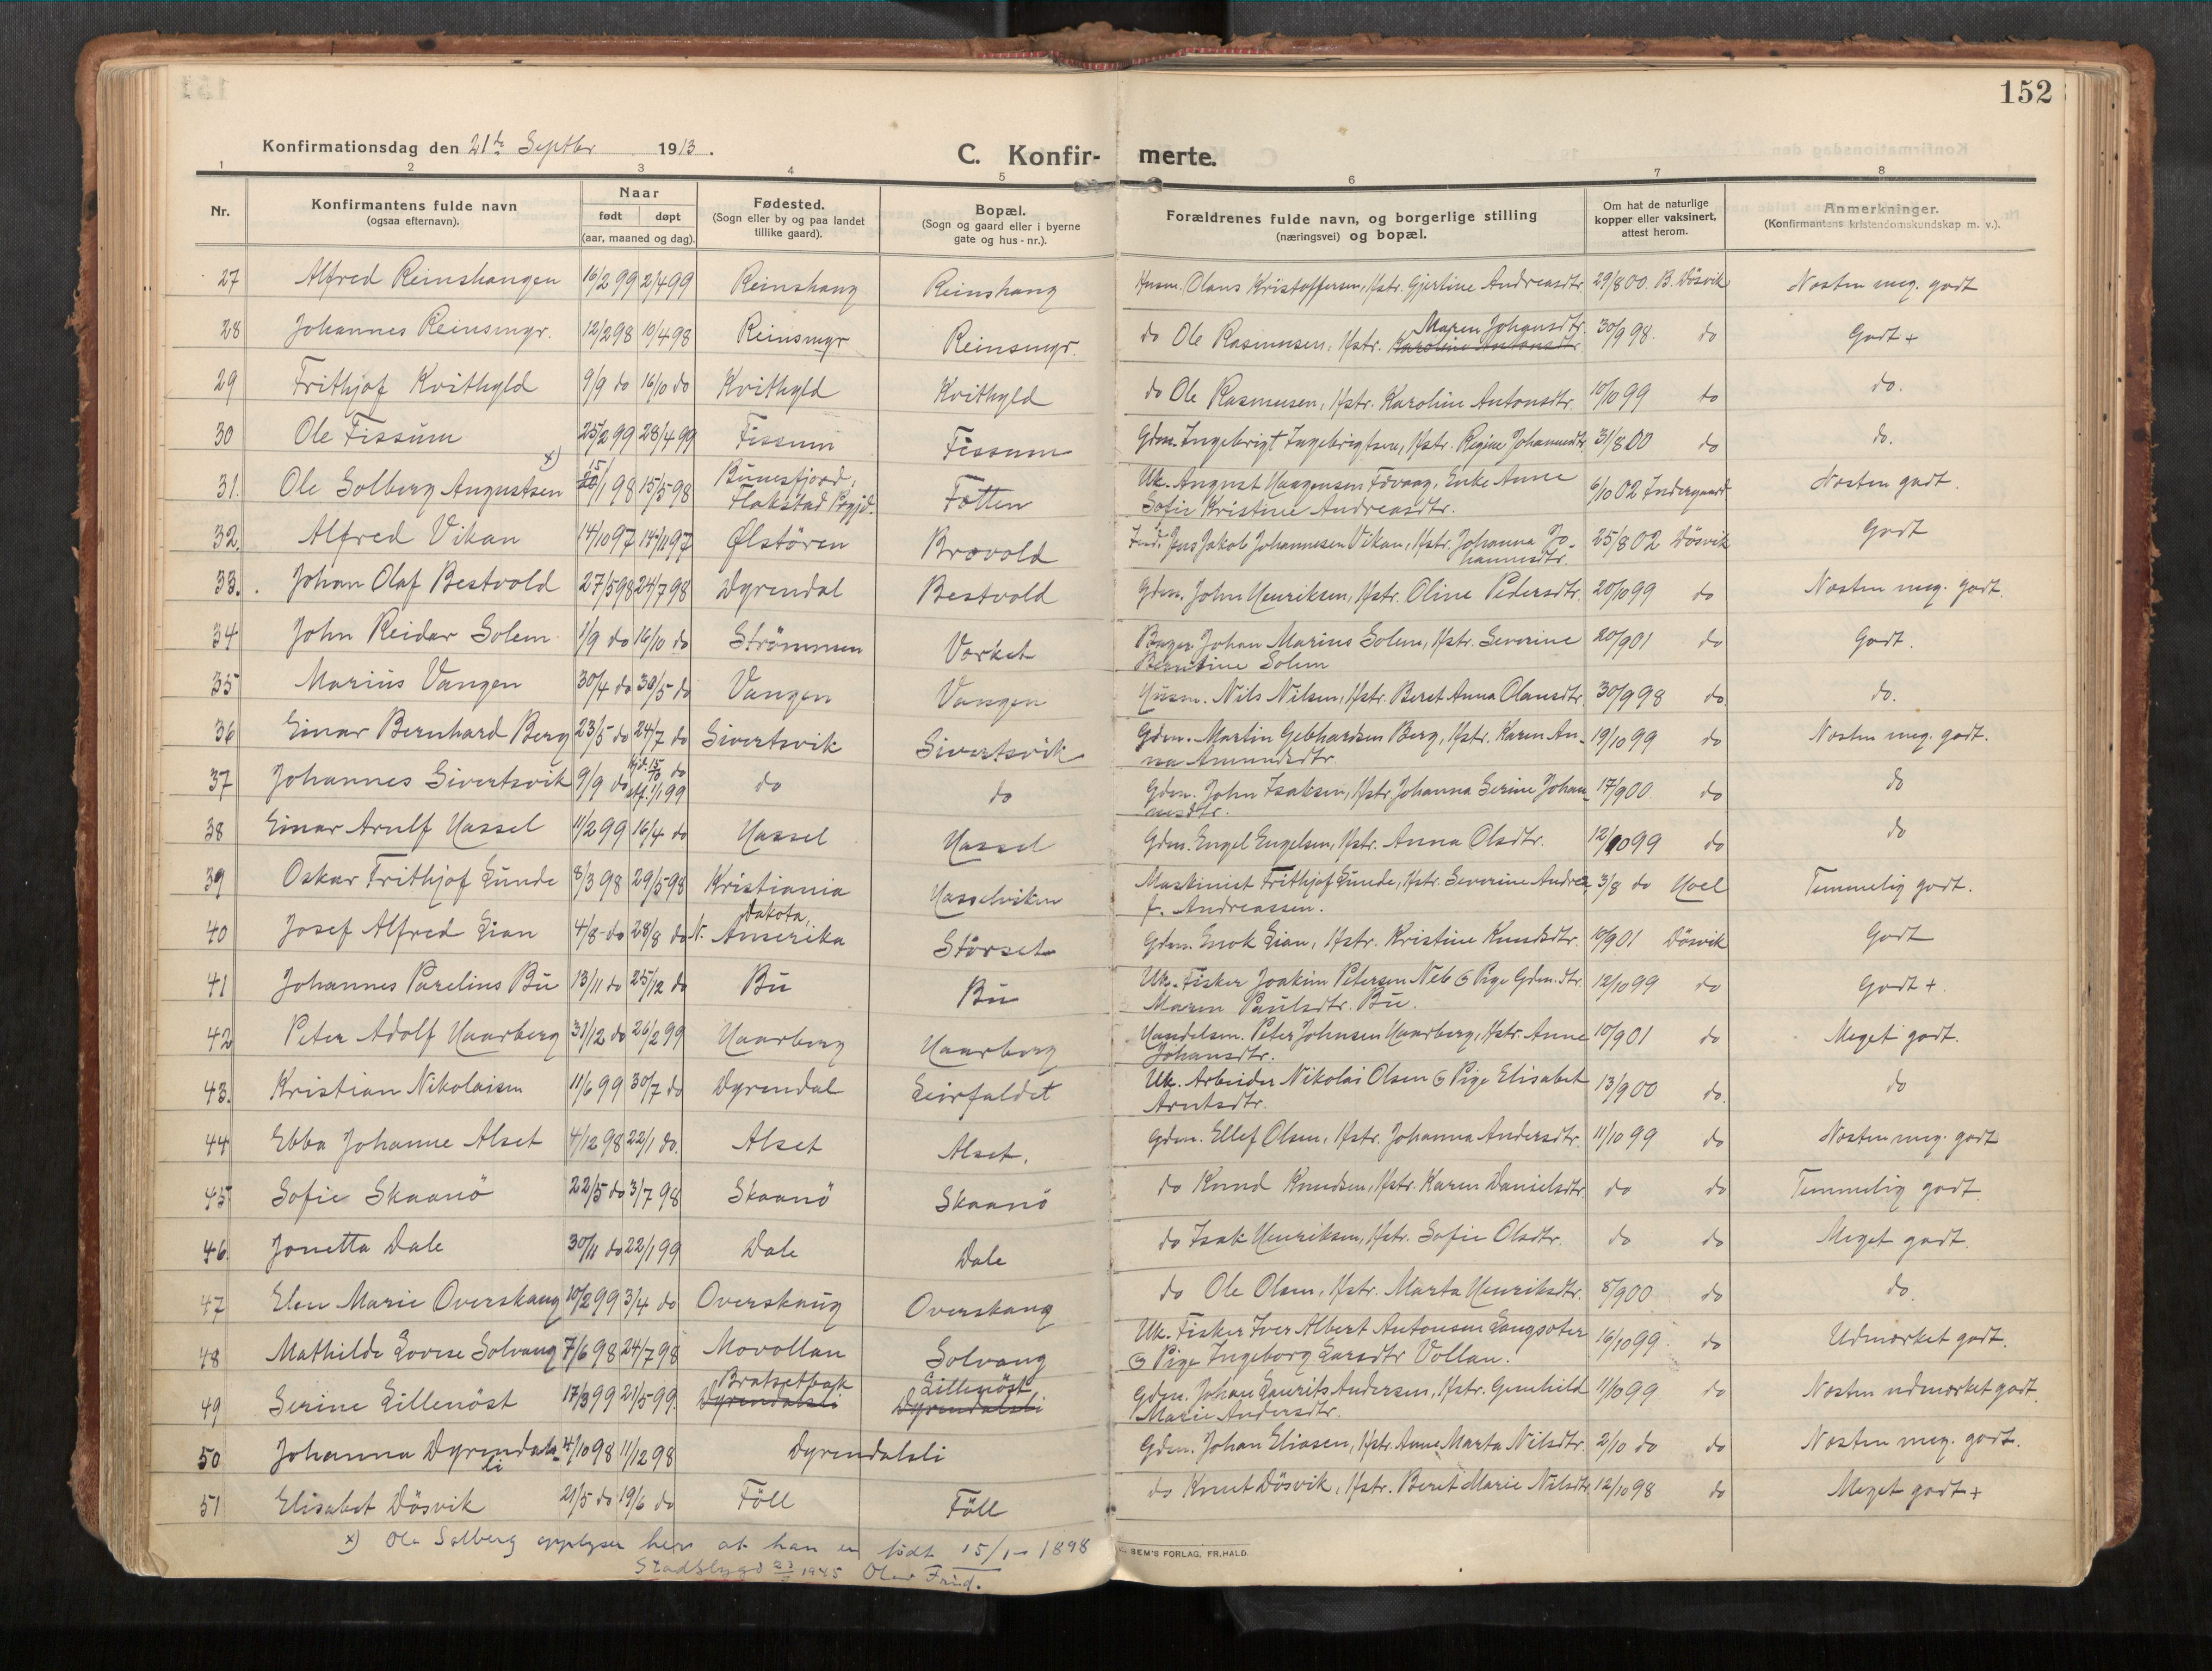 152
Konfirmationsdag den 21de Septbr 1913.
C. Konfir- merte.
1 2 3 4 5 6 7 8
Nr. Konfirmantens fulde navn (ogsaa efternavn). Naar født døpt (aar, maaned og dag). Fødested. (Sogn eller by og paa landet tillike gaard). Bopæl. (Sogn og gaard eller i byerne gate og hus-nr.). Forældrenes fulde navn, og borgerlige stilling (næringsvei) og bopæl. Om hat de naturlige kopper eller vaksinert, attest herom. Anmerkninger. (Konfirmantens kristendomskundskap m. v.).
27 Alfred Reinshaugen 16/2 99 2/4 99 Reinshaug Reinshaug Husm. Olaus Kristoffersen, Hstr. Gjertine Andreasdtr. 29/8 00. B. Dösvik Næsten meg. godt
28 Johannes Reinsmyr. 12/2 98 10/4 98 Reinsmyr Reinsmyr. do Ole Rasmussen, Hstr. Karoline Antonsdtr Maren Johansdtr. 30/9 98. do Godt +
29 Frithjof Kvithyld 9/9 do 16/10 do Kvithyld Kvithyld do Ole Rasmussen, Hstr. Karoline Antonsdtr. 10/10 99 do do.
30 Ole Fissum 25/2 99 28/4 99 Fissum Fissum Gdm. Ingebrigt Ingebrigtsen, Hstr. Regine Johannesdtr. 31/8 00 do do.
31. Ole Solberg Augustsen x) 15/1 98 15/5 98 Bunesfjord, Flakstad Prgjd. Fötten Uk. August Haagensen Föraag, Enke Anne
Sofie Kristine Andreasdtr. 6/10 02 Indergaard Næsten godt.
32. Alfred Vikan 14/10 97 14/11 97 Ølstören Brovold Ind. Jens Jakob Johannesen Vikan, Hstr. Johanna Jo-
hannesdtr. 25/8 02 Dösvik Godt
33. Johan Olaf Bestvold 27/5 98 24/7 98 Dyrendal Bestvold Gdm. John Henriksen, Hstr. Oline Pedersdtr. 20/10 99 do Næsten meg. godt.
34 John Reidar Solem 1/9 do 16/10 do Strömmen Værket Bager Johan Marius Solem, Hstr. Severine
Berntine Solem 20/9 01 do Godt.
35 Marius Vangen 30/4 do 30/5 do Vangen Vangen Husm. Nils Nilsen, Hstr. Beret Anna Olausdtr. 30/9 98 do do.
36 Einar Bernhard Berg 23/5 do 24/7 do Sivertsvik Sivertsvik Gdm. Martin Gebhardsen Berg, Hstr. Karen An-
na Amundsdtr. 19/10 99 do Næsten meg. godt.
37 Johannes Sivertsvik 9/9 do hjd. 15/10 do stf. 1/1 99 do do Gdm. John Isaksen, Hstr. Johanna Serine Johan-
nesdtr. 17/9 00 do do
38 Einar Arnlf Hassel 11/2 99 16/4 do Hassel Hassel Gdm. Engel Engelsen, Hstr. Anna Olsdtr. 12/10 99 do do
39 Oskar Frithjof Lunde 8/3 98 29/5 98 Kristiania Hasselviken Maskinist Frithjof Lunde, Hstr. Severine Andrea
f. Andreassen. 3/8 do Hoel Temmelig godt.
40 Josef Alfred Lian 4/8 do 28/8 do N. Dakota, Amerika Störset Gdm. Enok Lian, Hstr. Kristine Knudsdtr. 10/9 01 Dösvik Godt
41 Johannes Parelius Bu 13/11 do 25/12 do Bu Bu Uk. Fisker Joakim Petersen Neb & Pige Gdm.dtr.
Maren Paulsdtr. Bu. 12/10 99 do Godt +
42 Peter Adolf Haarberg 31/12 do 26/2 99 Haarberg Haarberg Handelsm. Peter Johnsen Haarberg, Hstr. Anne
Johansdtr. 10/9 01 do Meget godt.
43. Kristian Nikolaisen 11/6 99 30/7 do Dyrendal Leirfaldet Uk. Arbeider Nikolai Olsen & Pige Elisabet
Arntsdtr. 13/9 00 do. do
44 Ebba Johanne Alset 4/12 98 22/1 do. Alset Alset. Gdm. Ellef Olsen, Hstr. Johanna Andersdtr. 11/10 99 do Næsten meg. godt
45 Sofie Skaanö 22/5 do 3/7 98 Skaanö Skaanö do Knud Knudsen, Hstr. Karen Danielsdtr. do do Temmelig godt.
46. Jonetta Dale 30/11 do 22/1 99 Dale Dale do Isak Henriksen, Hstr. Sofie Olsdtr. do do Meget godt.
47 Elen Marie Overskaug 10/2 99 3/4 do Overskaug Overskaug do Ole Olsen, Hstr. Marta Henriksdtr. 8/9 00 do do.
48 Mathilde Lovise Solvang 7/6 98 24/7 98 Movollan Solvang Uk. Fisker Iver Albert Antonsen Langsæter
& Pige Ingeborg Larsdtr Vollan. 16/10 99 do Udmærket godt.
49 Serine Lillenöst 17/3 99 21/5 99. Bratsetbak Dyrendalsli Lillenöst Dyrendalsli Gdm. Johan Laurits Andersen, Hstr. Gunhild
Marie Andersdtr. 11/10 99 do Næsten udmærket godt
50 Johanna Dyrendals-
li 4/10 98 11/12 98 Dyrendalsli Gdm. Johan Eliasen, Hstr. Anne Marta Nilsdtr. 2/10 do do Næsten meg. godt.
51 Elisabet Dösvik 21/5 do 19/6 do Föll Föll do Knut Dösvik, Hstr. Beret Marie Nilsdtr 12/10 98 do Meget godt +
x) Ole Solberg opplyser her at han er født 15/1 - 1898
Stadsbygd 1945 Olav
SEM'S FORLAG, FR.HALD.